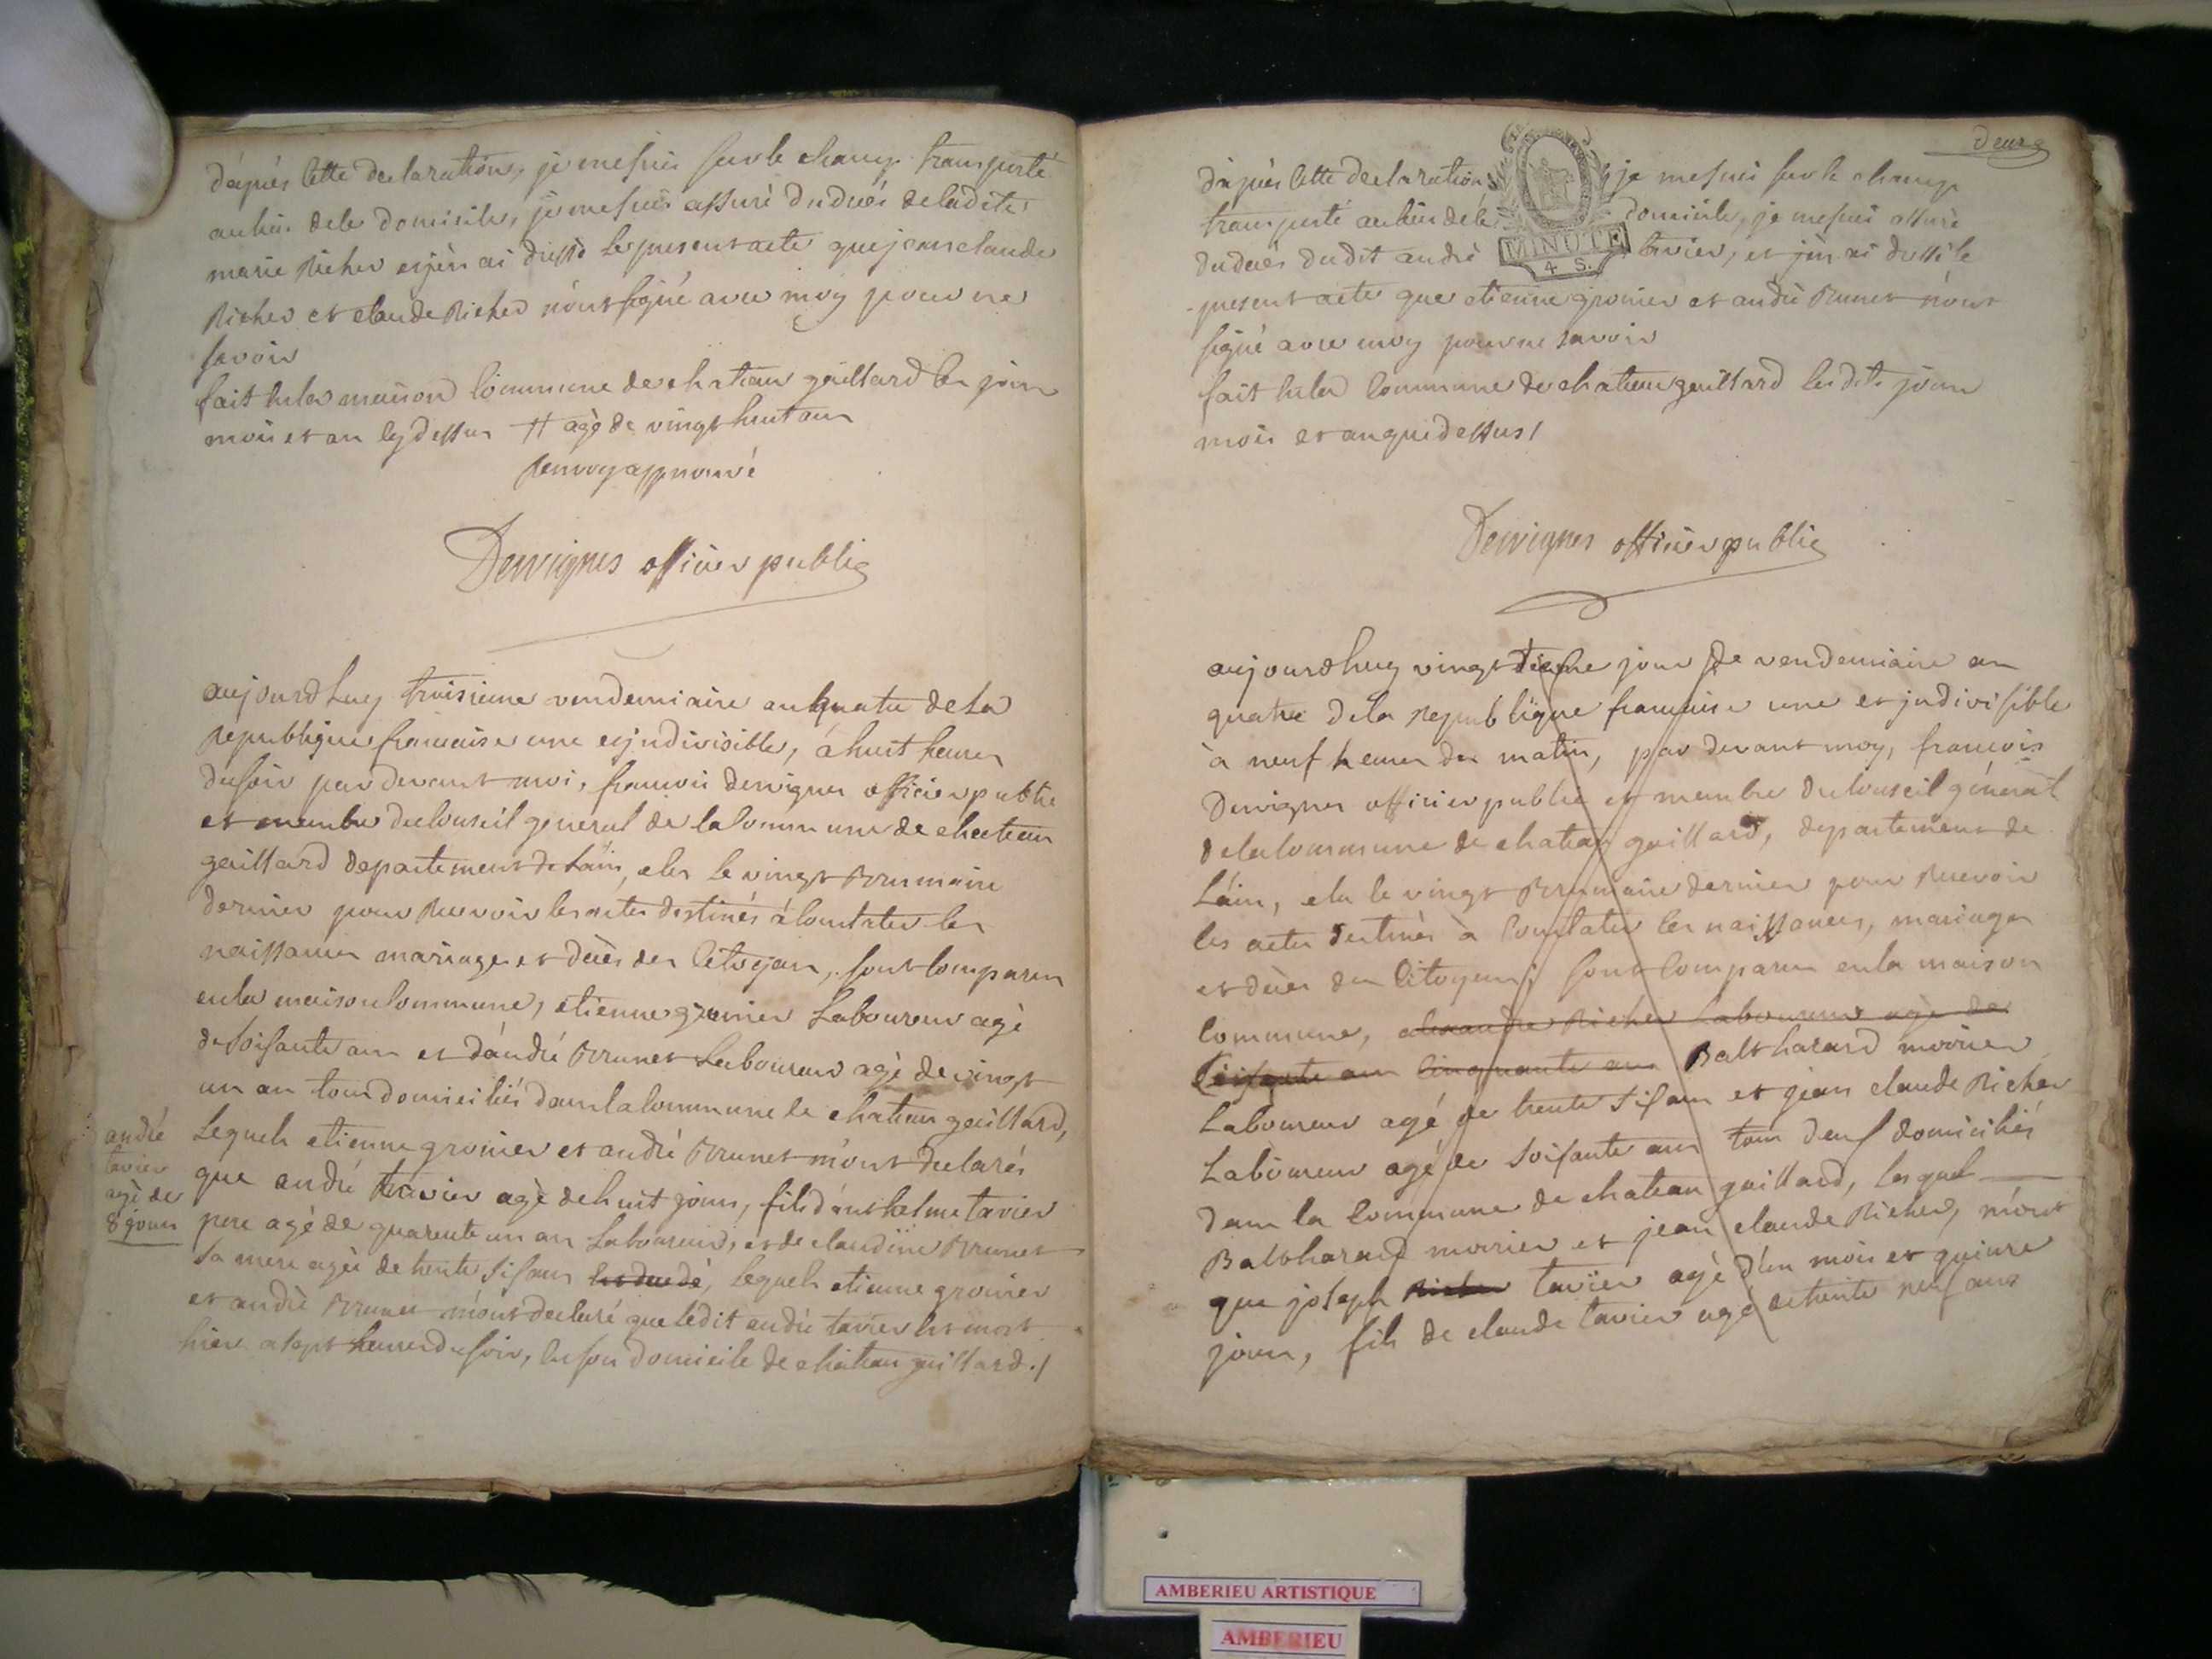 d'après cette declaration, je me suis sur le champ transporté
au lieu de le domicile, je me suis assuré du decés de ladite
marie Richer et j'en ai dressé le present acte que jean claude
Richer et claude Richer n'ont signé avec moy pour ne
savoir
fait en la maison commune de chatiau gaillard les jour
mois et an cy dessus # agé de vingt huit ans
renvoy approuvé
Dervignes officier public
aujourdhuy troisieme vendemiaire an quatre de la
republique francaise une et jndivisible, à huit heures
du soir par devant moi, francois dervignes officier public
et membre du conseil general de la commune de chateau
gaillard departement de l'ain, elu le vingt Brumaire
dernier pour recevoir les actes destinés à constater les
naissances mariages et decès des citoyens, sont comparus
en la maison commune, etienne gronier laboureur agé
de soisante ans et d'andré Brunet laboureur agé de vingt
un an tous domiciliés dans la commune de chatiau gaillard,
lequels etienne gronier et andré Brunet m'ont declarés
que andré tavier agé de huit jours, fils d'anthelme tavier
pere agé de quarente un an laboureur, et de claudine Brunet
sa mere agée de trente sis ans est decedé, lequels etienne gronier
et andré Brunet m'ont declaré que ledit andré tavier est mort
hier a sept heures du soir, en son domicile de chatiau gaillard./
andré
tavier
agé de
8 jours
deux
d'après cette declaration, je me suis sur le champ
transporté au lieu de le domicile, je me suis assuré
du decés dudit andré tavier, et j'en ai dressé le
present acte que etienne gronier et andré Brunet n'ont
signé avec moy pour ne savoir
fait en la commune de chatiau gaillard les dits jour
mois et an que dessus /
MINUTE
4 S.
Dervignes officier public
aujourdhuy vingt jour de vendemiaire an
quatre de la republique francaise une et jndivisible
à neuf heures du matin, par devant moy, francois
Dervignes officier public et membre du conseil géneral
de la commune de chatiau gaillard, departement de
l'ain, elu le vingt Brumaire dernier pour recevoir
les actes destinés à constater les naissances, mariages
et decès des citoyens, sont comparus en la maison
commune, alexandre Richer laboureur agé de
soisante ans cinquante ans Balthazard morier
laboureur agé de trente sis ans et jean claude Richer
laboureur agé de soisante ans tous deux domiciliés
dans la commune de chatiau gaillard, lesquel
Balthazard morier et jean claude Richer, m'ont
que joseph Richer tavier agé d'un mois et quinze
jours, fils de claude tavier agé de trente neuf ans
AMBERIEU ARTISTIQUE
AMBERIEU